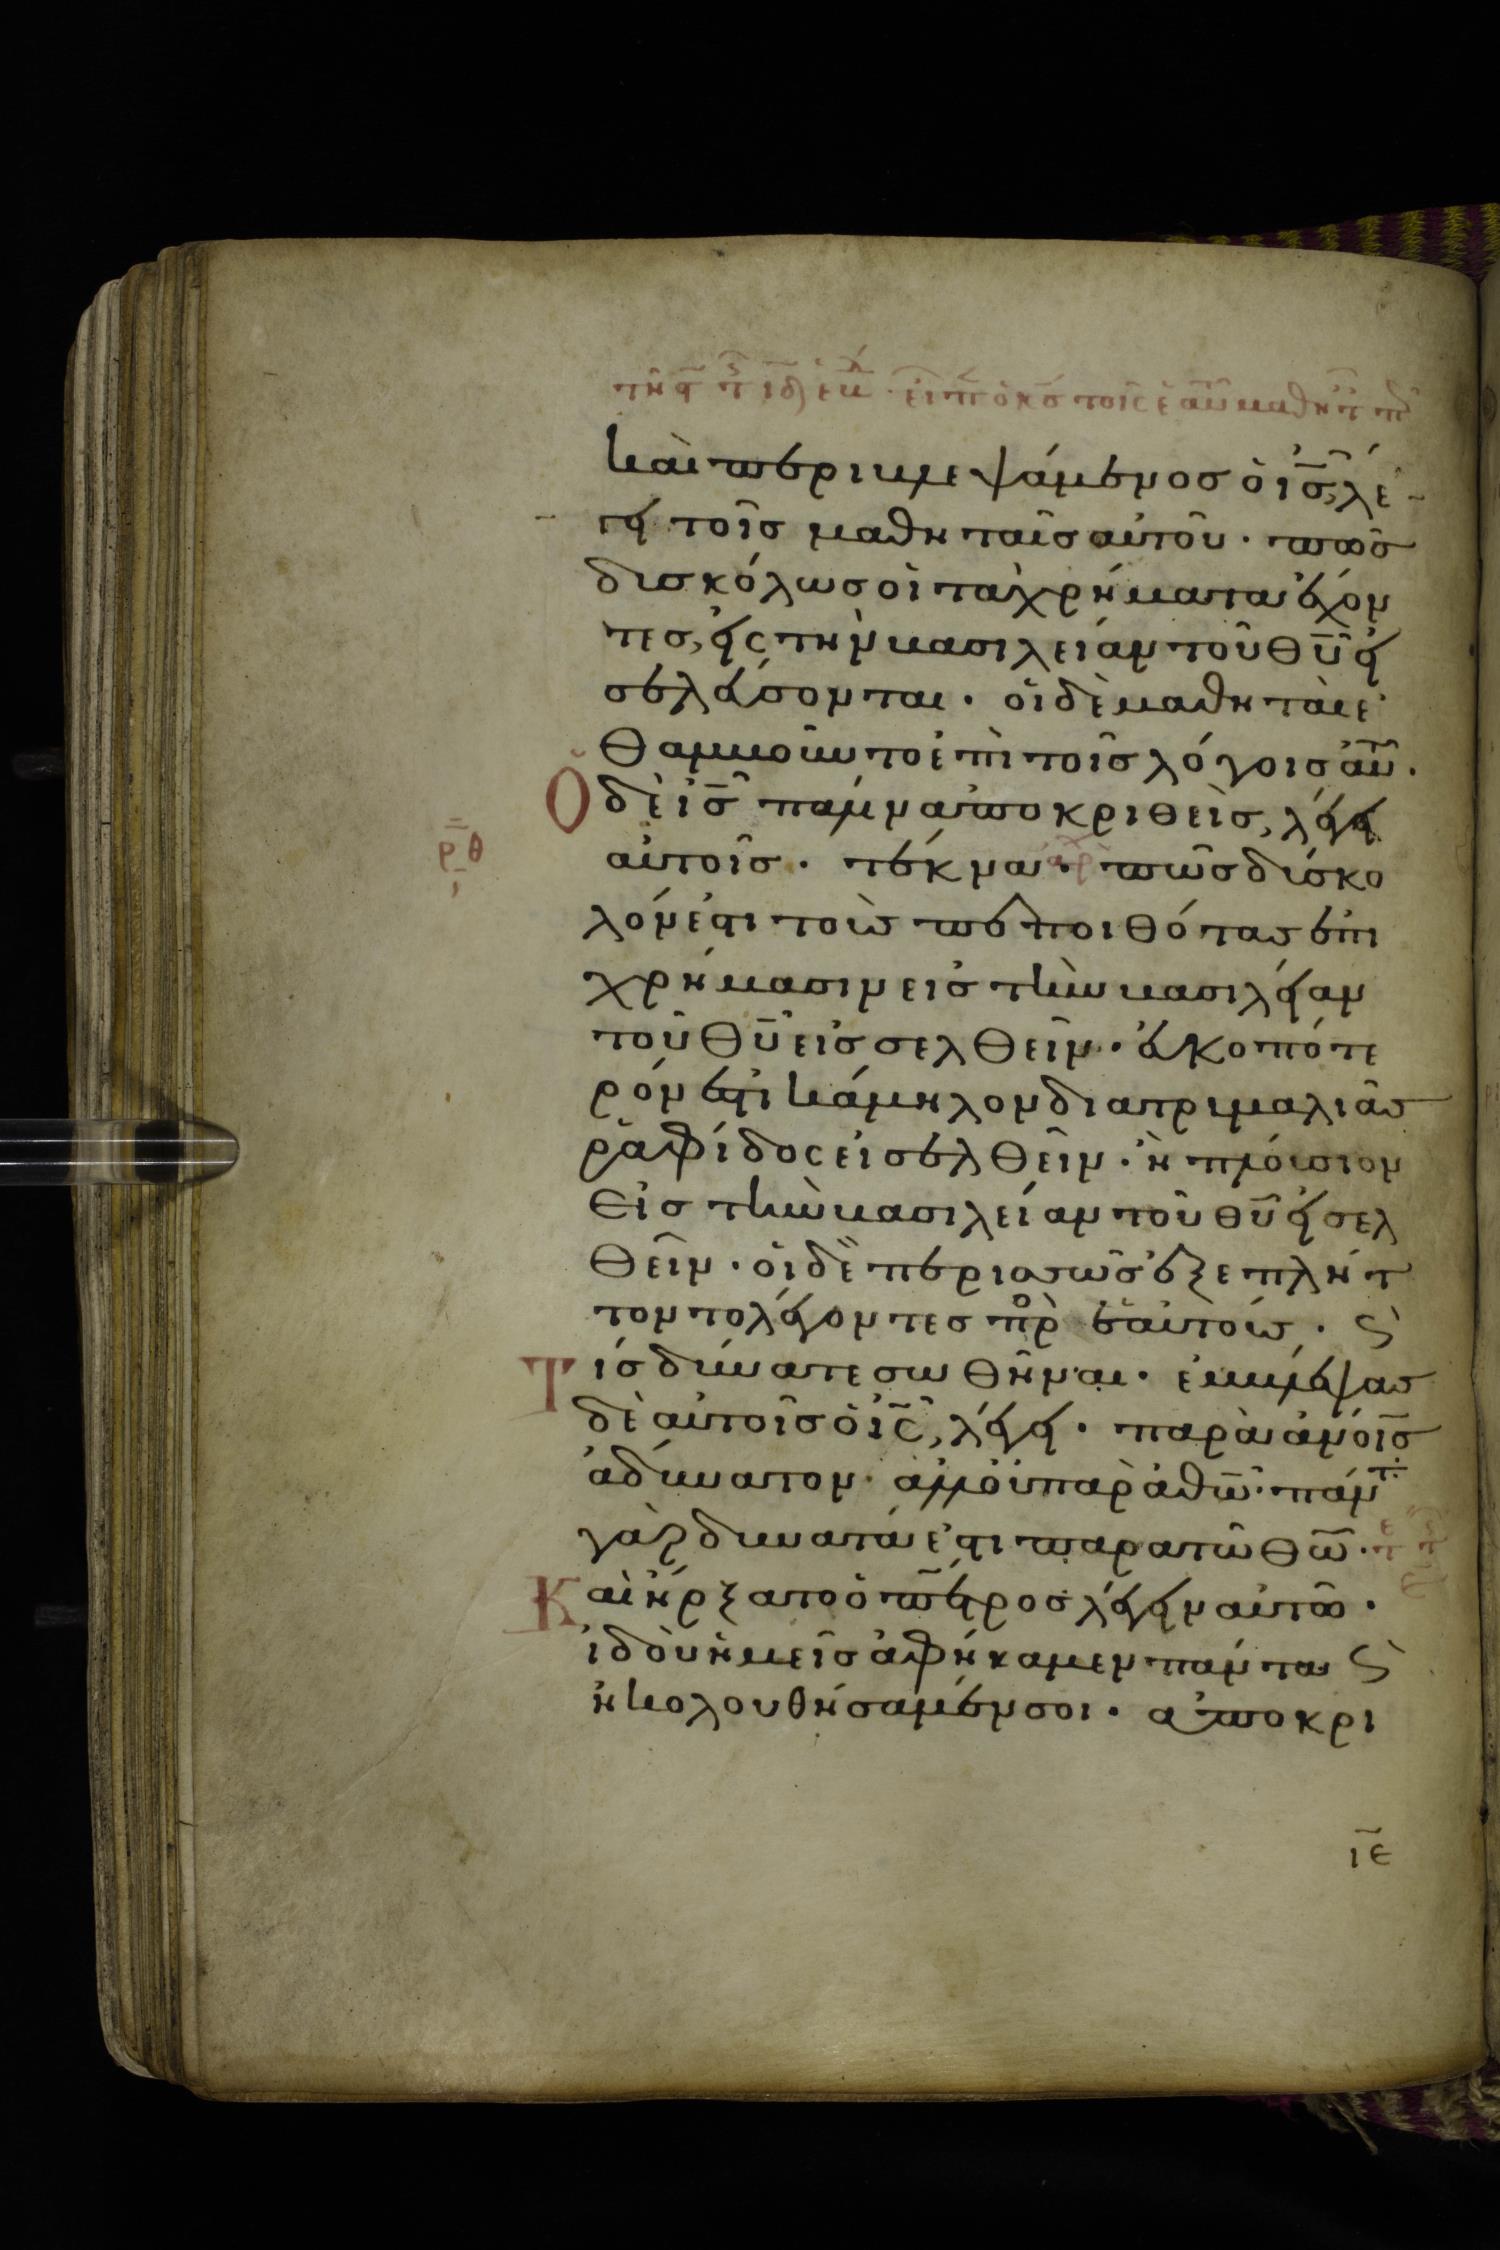 καὶ περιβλεψάμενος ὁ ις̅, λέ
γει τοῖς μαθηταῖς αὐτοῦ · πῶς
δισκόλως οἱ τὰ χρήματα ἔχον
τες, εἰς τὴν βασιλείαν τοῦ θυ̅ εἰ
σελεύσονται · οἱ δὲ μαθηταὶ ἐ
θαμβοῦντο ἐπὶ τοῖς λόγοις αὐ̅ ·
Ὁ δὲ ις̅ πάλιν ἀποκριθεὶς, λέγει
ρθ̅
αὐτοῖς · τέκνα · πῶς δύσκο
λόν ἐστι τοὺς πεποιθότας ἐπὶ
χρήμασιν εἰς τὴν βασιλείαν
τοῦ θυ̅ εἰσσελθεῖν · εὐκοπότε
ρόν ἐστι κάμηλον διὰ τριμαλιᾶς
ῥαφίδος εἰσελθεῖν · ἢ πλούσιον
εἰς τὴν βασιλείαν τοῦ θυ̅ εἰσελ
θεῖν · οἱ δὲ περισσῶς ἐξεπλήτ
τοντο λέγοντες πρ̀ ἑαυτούς · ϛ̀
Τίς δύνατε σωθῆναι · ἐμβλέψας
δὲ αὐτοῖς ὁ ις̅, λέγει · παρὰ ἀνοις̅
ἀδύνατον · ἀλλ' οὐ παρὰ θω̅ · πάντ
γὰρ δυνατά ἐστι παρὰ τῶ θω̅ ·
Καὶ ἤρξατο ὁ πέτρος λέγειν αὐτῶ ·
ἰδοὺ ἡμεῖς ἀφήκαμεν πάντα ϛ̀
ἠκολουθήσαμέν σοι · ἀποκρι
ιε̅